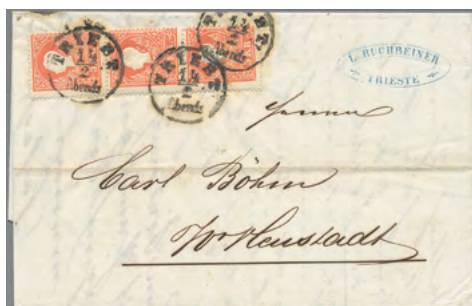 TRIEST
14
2
Abends
TRIEST
14
2
Abends
TRIEST
14
2
Abends
L. BUCHREINER
TRIESTE
Herrn
Carl Böhm
Wr Neustadt